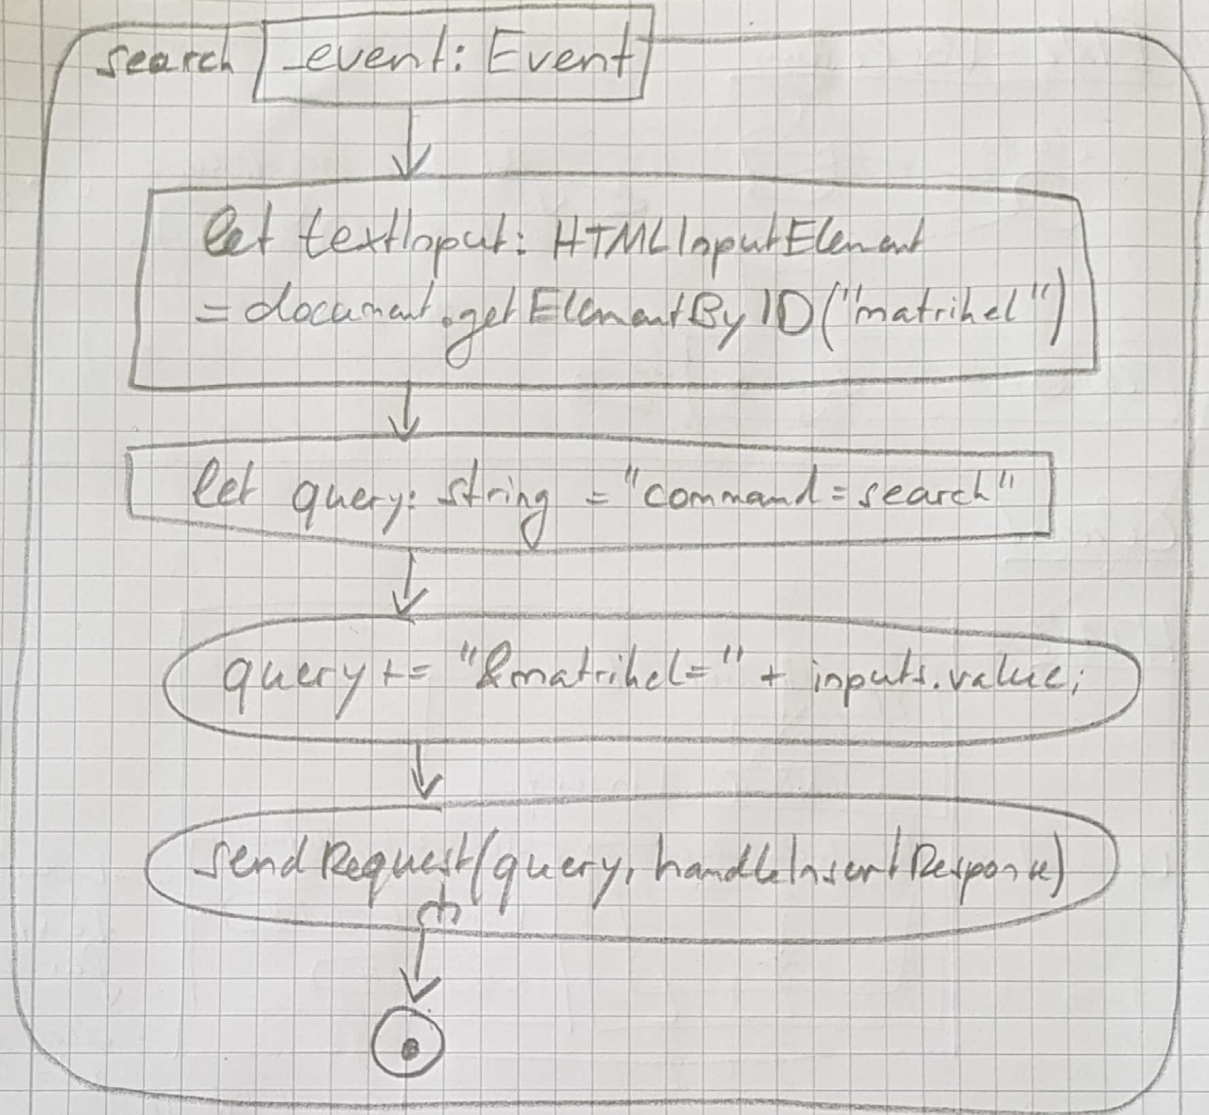 search
_event: Event
let textInput: HTMLInputElement
= document.getElementByID("matrikel")
let query: string = "command=search"
query += "&matrikel=" + inputs.value;
sendRequest(query, handleInsertResponse)